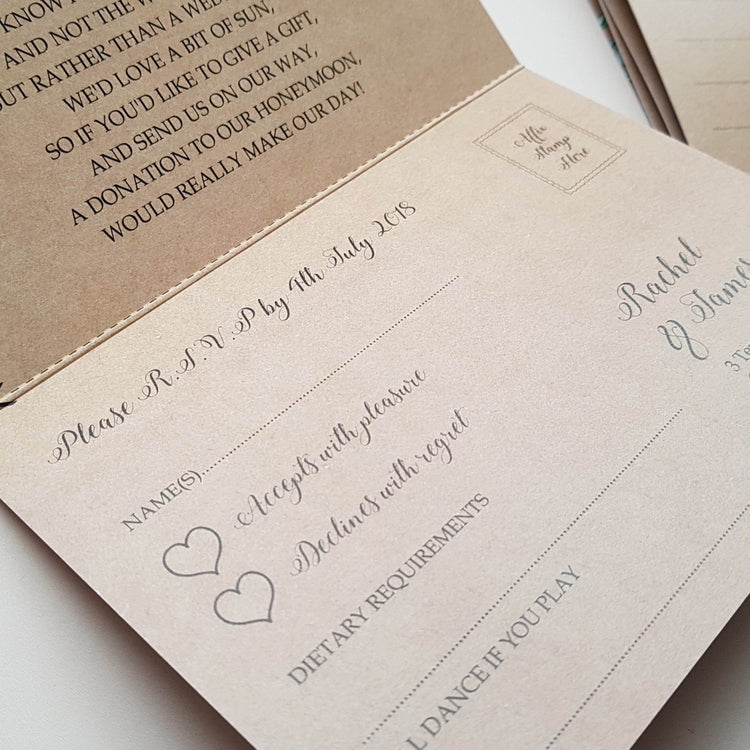 KNOW
AND NOT THE
RATHER THAN A
WE'D LOVE A BIT OF SUN,
SO IF YOU'D LIKE TO GIVE A GIFT,
AND SEND US ON OUR WAY,
A DONATION TO OUR HONEYMOON,
WOULD REALLY MAKE OUR DAY!
Affix
Stamp
Here
Please R.S.V.P by 4th July 2018
NAME(S)
Accepts with pleasure
Declines with regret
DIETARY REQUIREMENTS
DANCE IF YOU PLAY
Rachel
& James
3